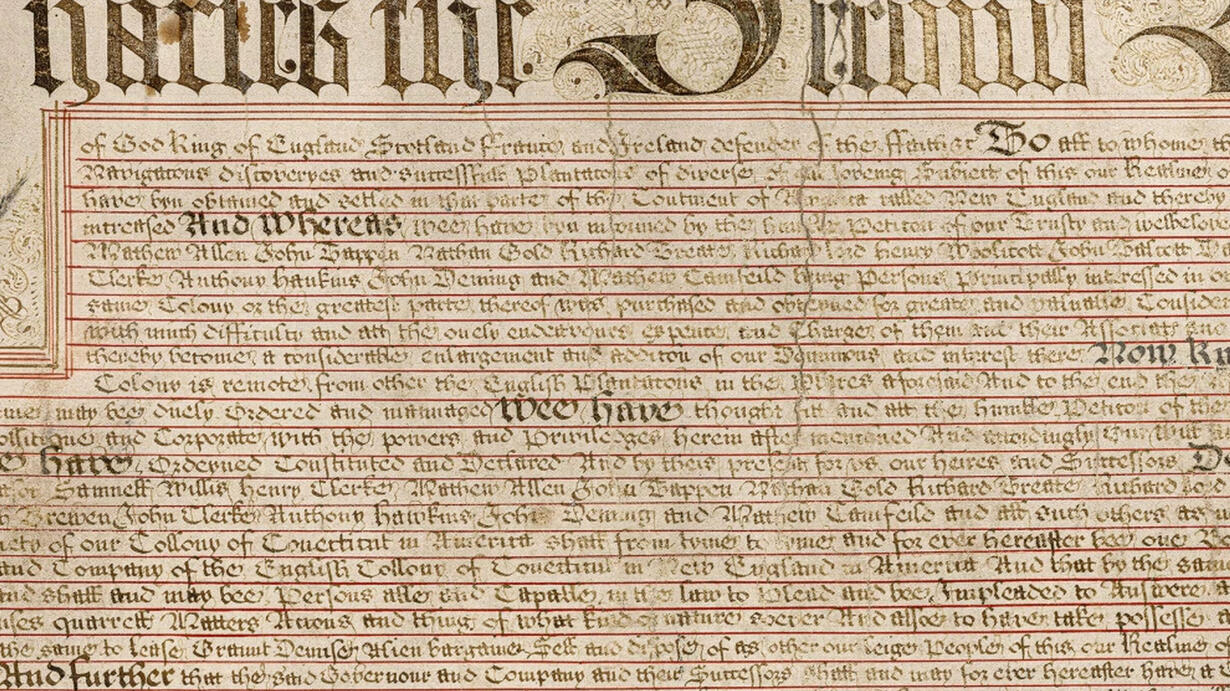 harles the Second
of God King of England Scotland France and Ireland defender of the ffaith &c To all to whome
Navigatons discoveryes and successfull Plantatons of diverse of our loveing Subiects of this our Realme
have byn obtained and setled in that parte of the Continent of America called New England and thereby
increased And Whereas wee have byn informed by the humble Petiton of our Trusty and welbelov
Mathew Allen John Tappen Nathan Gold Richard Treate Richard Lord Henry Woolicott John Talcott
Clerke Anthony Hawkins John Deming and Mathew Camfeild being Persons Principally interessed in
same Colony or the greatest parte thereof was purchased and obteyned for greate and valuable Conside
with much difficulty and att the onely endeavours expence and Charge of them and their Associats
thereby become a considerable enlargement and additon of our Dominions and interest there Now Kn
Colony is remote from other the English Plantatons in the Places aforesaid And to the end the
may bee duely Ordered and mannaged Wee have thought fitt and att the humble Petiton of the
ollitique and Corporate with the powers and Priviledges herein after mentioned And accordingly Our Will
have Ordeyned Constituted and Declared And by theis presents for vs our heires and Successors
Samuell Willis Henry Clerke Mathew Allen John Tappen Nathan Gold Richard Treate Richard Lord
Brewen John Clerke Anthony Hawkins John Deming and Mathew Camfeild and all such others as
of our Collony of Conecticut in America shall from tyme to tyme and for ever hereafter bee one
and Company of the English Collony of Conecticut in New England in America And that by the same
and shall and may bee Persons able and Capable in the law to Plead and bee Impleaded to Answere
quarrells Matters Actions and things of what kind or nature soever And alsoe to have take possesse
the same to lease Graunt Demise Alien bargaine Sell and dispose of as other our leige People of this our Realme
And further that the said Governour and Company and their Successors shall and may for ever hereafter have a